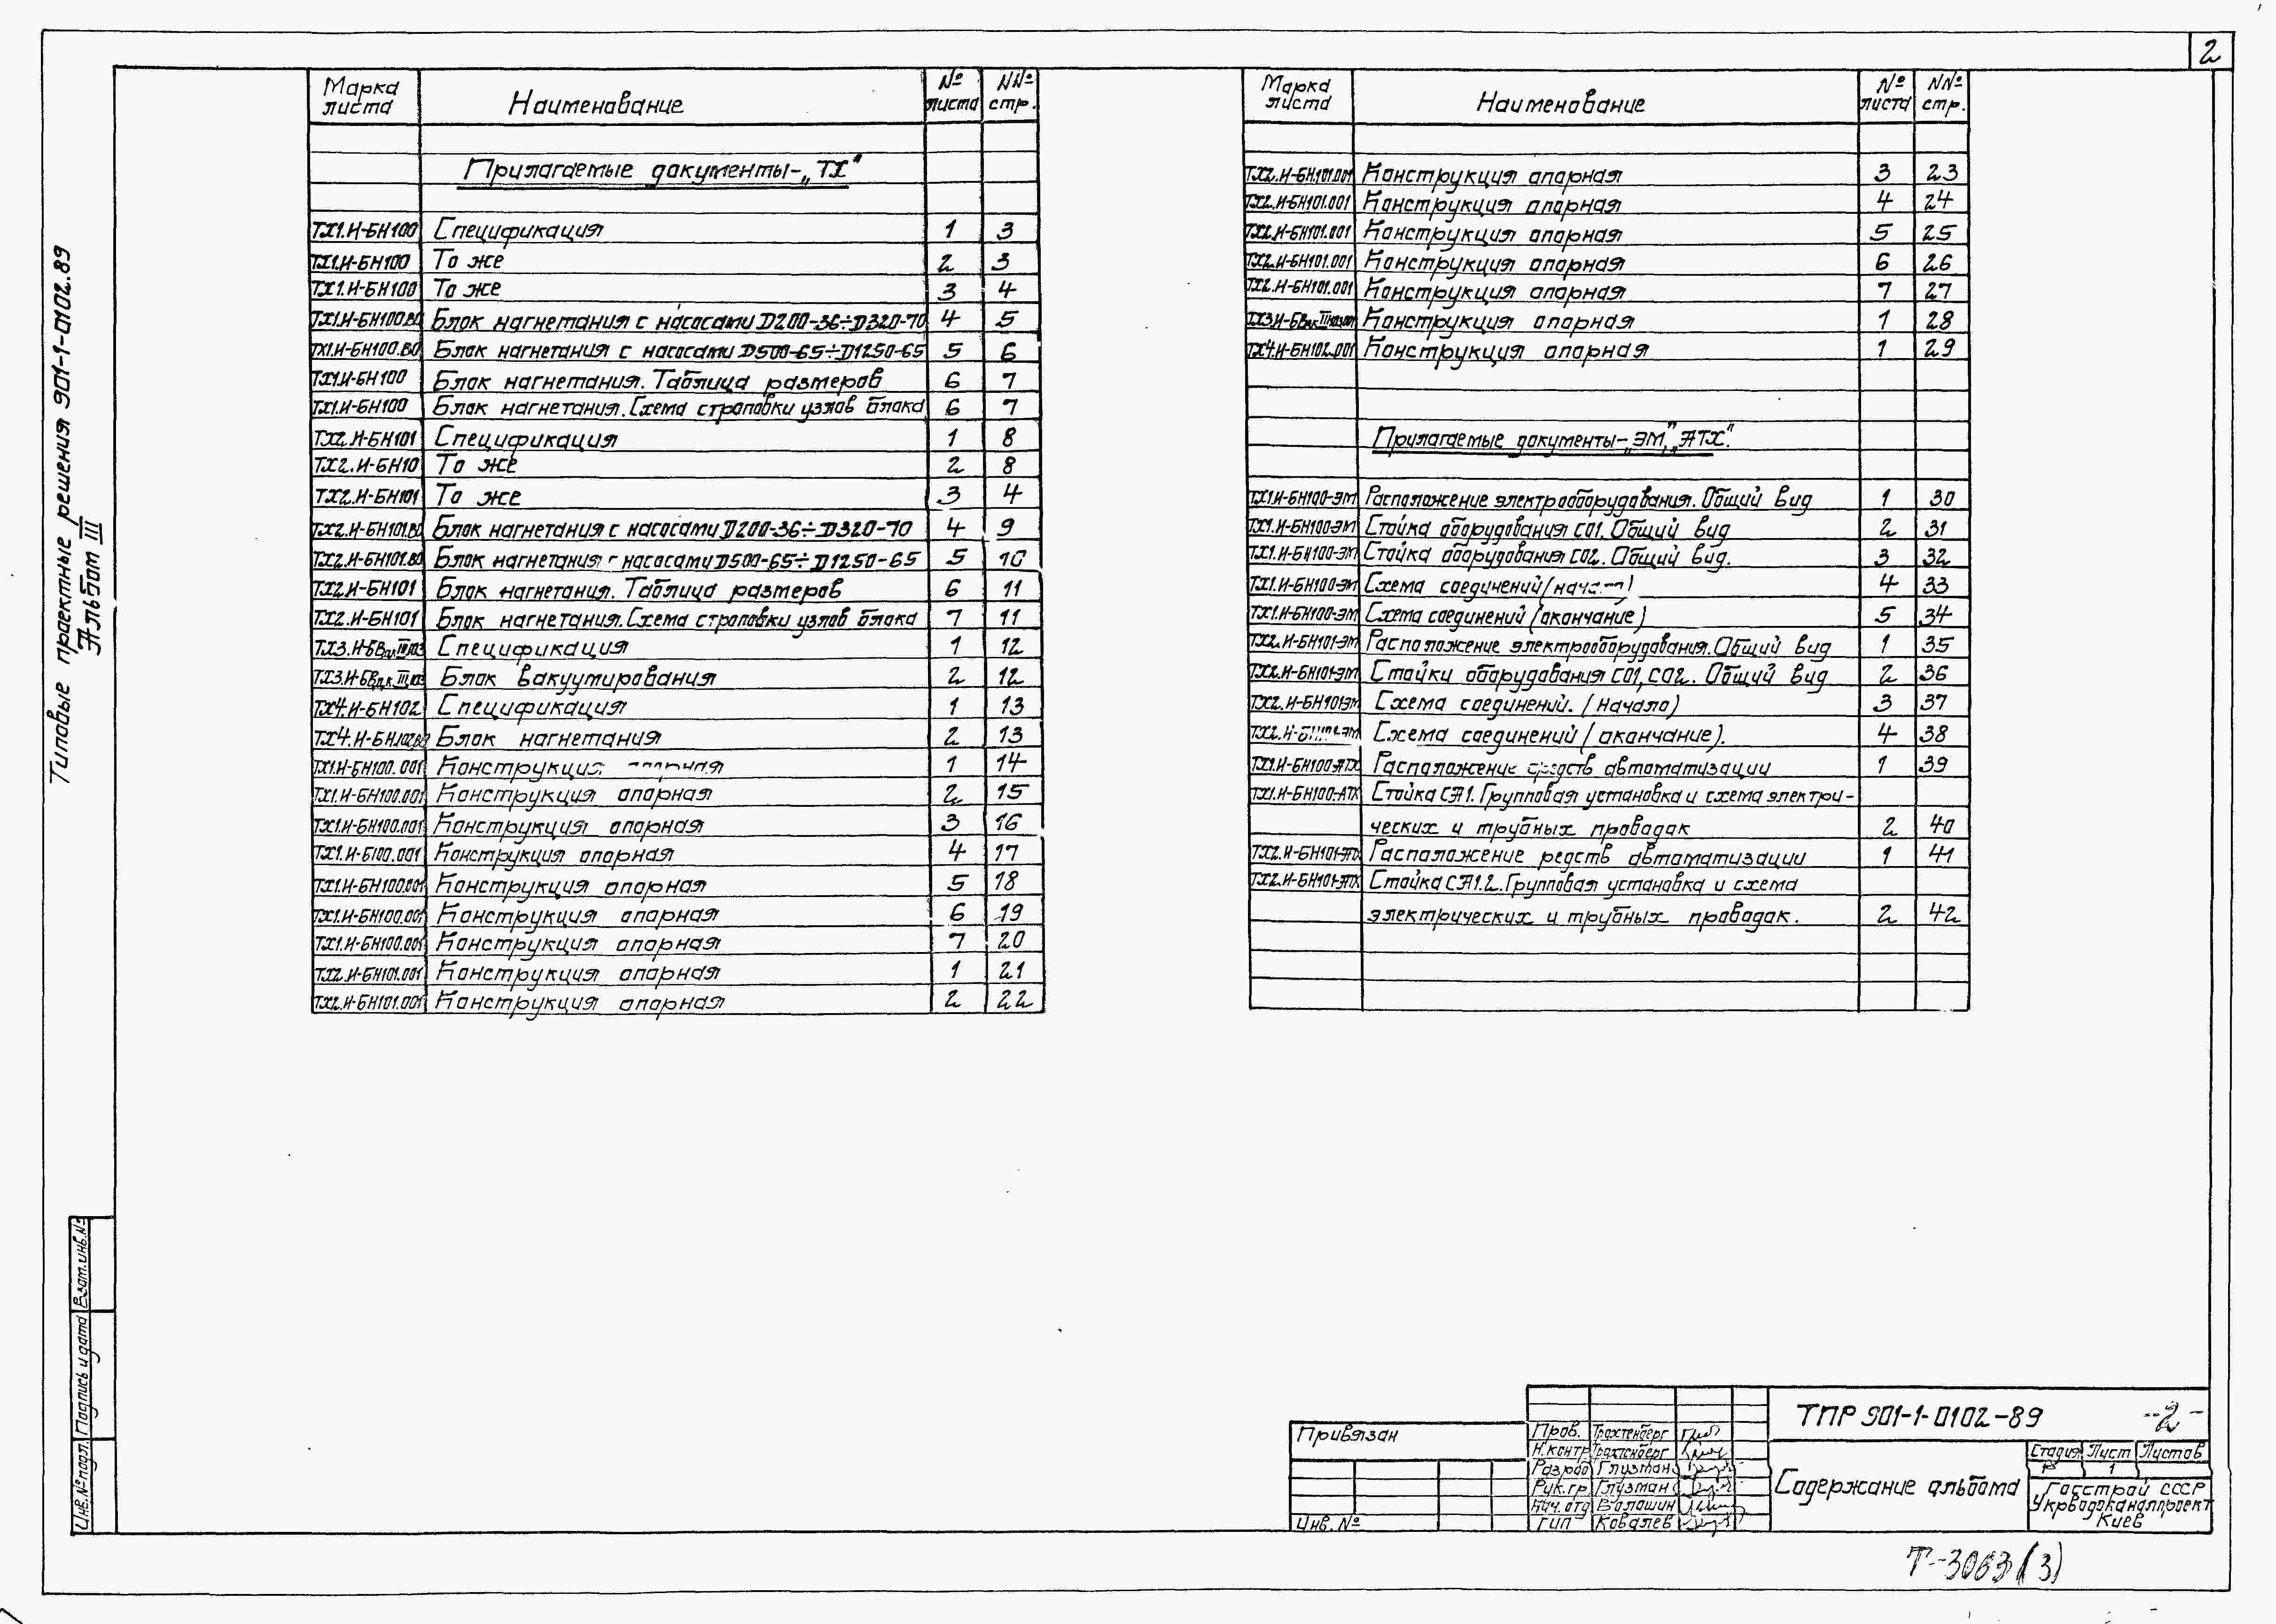 2
Типовые проектные решения 901-1-0102.89
Альбом III
Марка листа | Наименование | № листа | №№ стр.
Прилагаемые документы-„ТХ"
ТХ1.И-БН100 Спецификация 1 3
ТХ1.И-БН100 То же 2 3
ТХ1.И-БН100 То же 3 4
ТХ1.И-БН100.ВО Блок нагнетания с насосами D200-36÷D320-70 4 5
ТХ1.И-БН100.ВО Блок нагнетания с насосами D500-65÷D1250-65 5 6
ТХ1.И-БН100 Блок нагнетания. Таблица размеров 6 7
ТХ1.И-БН100 Блок нагнетания. Схема строповки узлов блока 6 7
ТХ2.И-БН101 Спецификация 1 8
ТХ2.И-БН10 То же 2 8
ТХ2.И-БН101 То же 3 4
ТХ2.И-БН101.ВО Блок нагнетания с насосами D200-36÷D320-70 4 9
ТХ2.И-БН101.ВО Блок нагнетания с насосами D500-65÷D1250-65 5 10
ТХ2.И-БН101 Блок нагнетания. Таблица размеров 6 11
ТХ2.И-БН101 Блок нагнетания. Схема строповки узлов блока 7 11
Спецификация 1 12
Блок вакуумирования 2 12
ТХ4.И-БН102 Спецификация 1 13
ТХ4.И-БН102.ВО Блок нагнетания 2 13
ТХ1.И-БН100.001 Конструкция опорная 1 14
ТХ1.И-БН100.001 Конструкция опорная 2 15
ТХ1.И-БН100.001 Конструкция опорная 3 16
ТХ1.И-Б100.001 Конструкция опорная 4 17
ТХ1.И-БН100.001 Конструкция опорная 5 18
ТХ1.И-БН100.001 Конструкция опорная 6 19
ТХ1.И-БН100.001 Конструкция опорная 7 20
ТХ2.И-БН101.001 Конструкция опорная 1 21
ТХ2.И-БН101.001 Конструкция опорная 2 22
Марка листа | Наименование | № листа | №№ стр.
ТХ2.И-БН101.001 Конструкция опорная 3 23
ТХ2.И-БН101.001 Конструкция опорная 4 24
ТХ2.И-БН101.001 Конструкция опорная 5 25
ТХ2.И-БН101.001 Конструкция опорная 6 26
ТХ2.И-БН101.001 Конструкция опорная 7 27
Конструкция опорная 1 28
ТХ4.И-БН102.001 Конструкция опорная 1 29
Прилагаемые документы-„ЭМ", „АТХ".
ТХ1.И-БН100-ЭМ Расположение электрооборудования. Общий вид 1 30
ТХ1.И-БН100-ЭМ Стойка оборудования СО1. Общий вид 2 31
ТХ1.И-БН100-ЭМ Стойка оборудования СО2. Общий вид. 3 32
ТХ1.И-БН100-ЭМ Схема соединений (начало) 4 33
ТХ1.И-БН100-ЭМ Схема соединений (окончание) 5 34
ТХ2.И-БН101-ЭМ Расположение электрооборудования. Общий вид 1 35
ТХ2.И-БН101-ЭМ Стойки оборудования СО1, СО2. Общий вид 2 36
ТХ2.И-БН101-ЭМ Схема соединений. (Начало) 3 37
ТХ2.И-БН101-ЭМ Схема соединений (окончание). 4 38
ТХ1.И-БН100-АТХ Расположение средств автоматизации 1 39
ТХ1.И-БН100-АТХ Стойка СА1. Групповая установка и схема электри-
ческих и трубных проводок 2 40
ТХ2.И-БН101-АТХ Расположение редств автоматизации 1 41
ТХ2.И-БН101-АТХ Стойка СА1.2. Групповая установка и схема
электрических и трубных проводок. 2 42
Взам. инв. №
Подпись и дата
Инв. № подл.
Привязан
Инв. №
Пров. Трахтенберг
Н. контр Трахтенберг
Разраб Глузман
Рук. гр. Глузман
Нач. отд Волошин
ГИП Ковалев
ТПР 901-1-0102-89 -2-
Содержание альбома
Стадия Лист Листов
Р 1
Госстрой СССР
Укрводоканалпроект
Киев
Т-3063 (3)